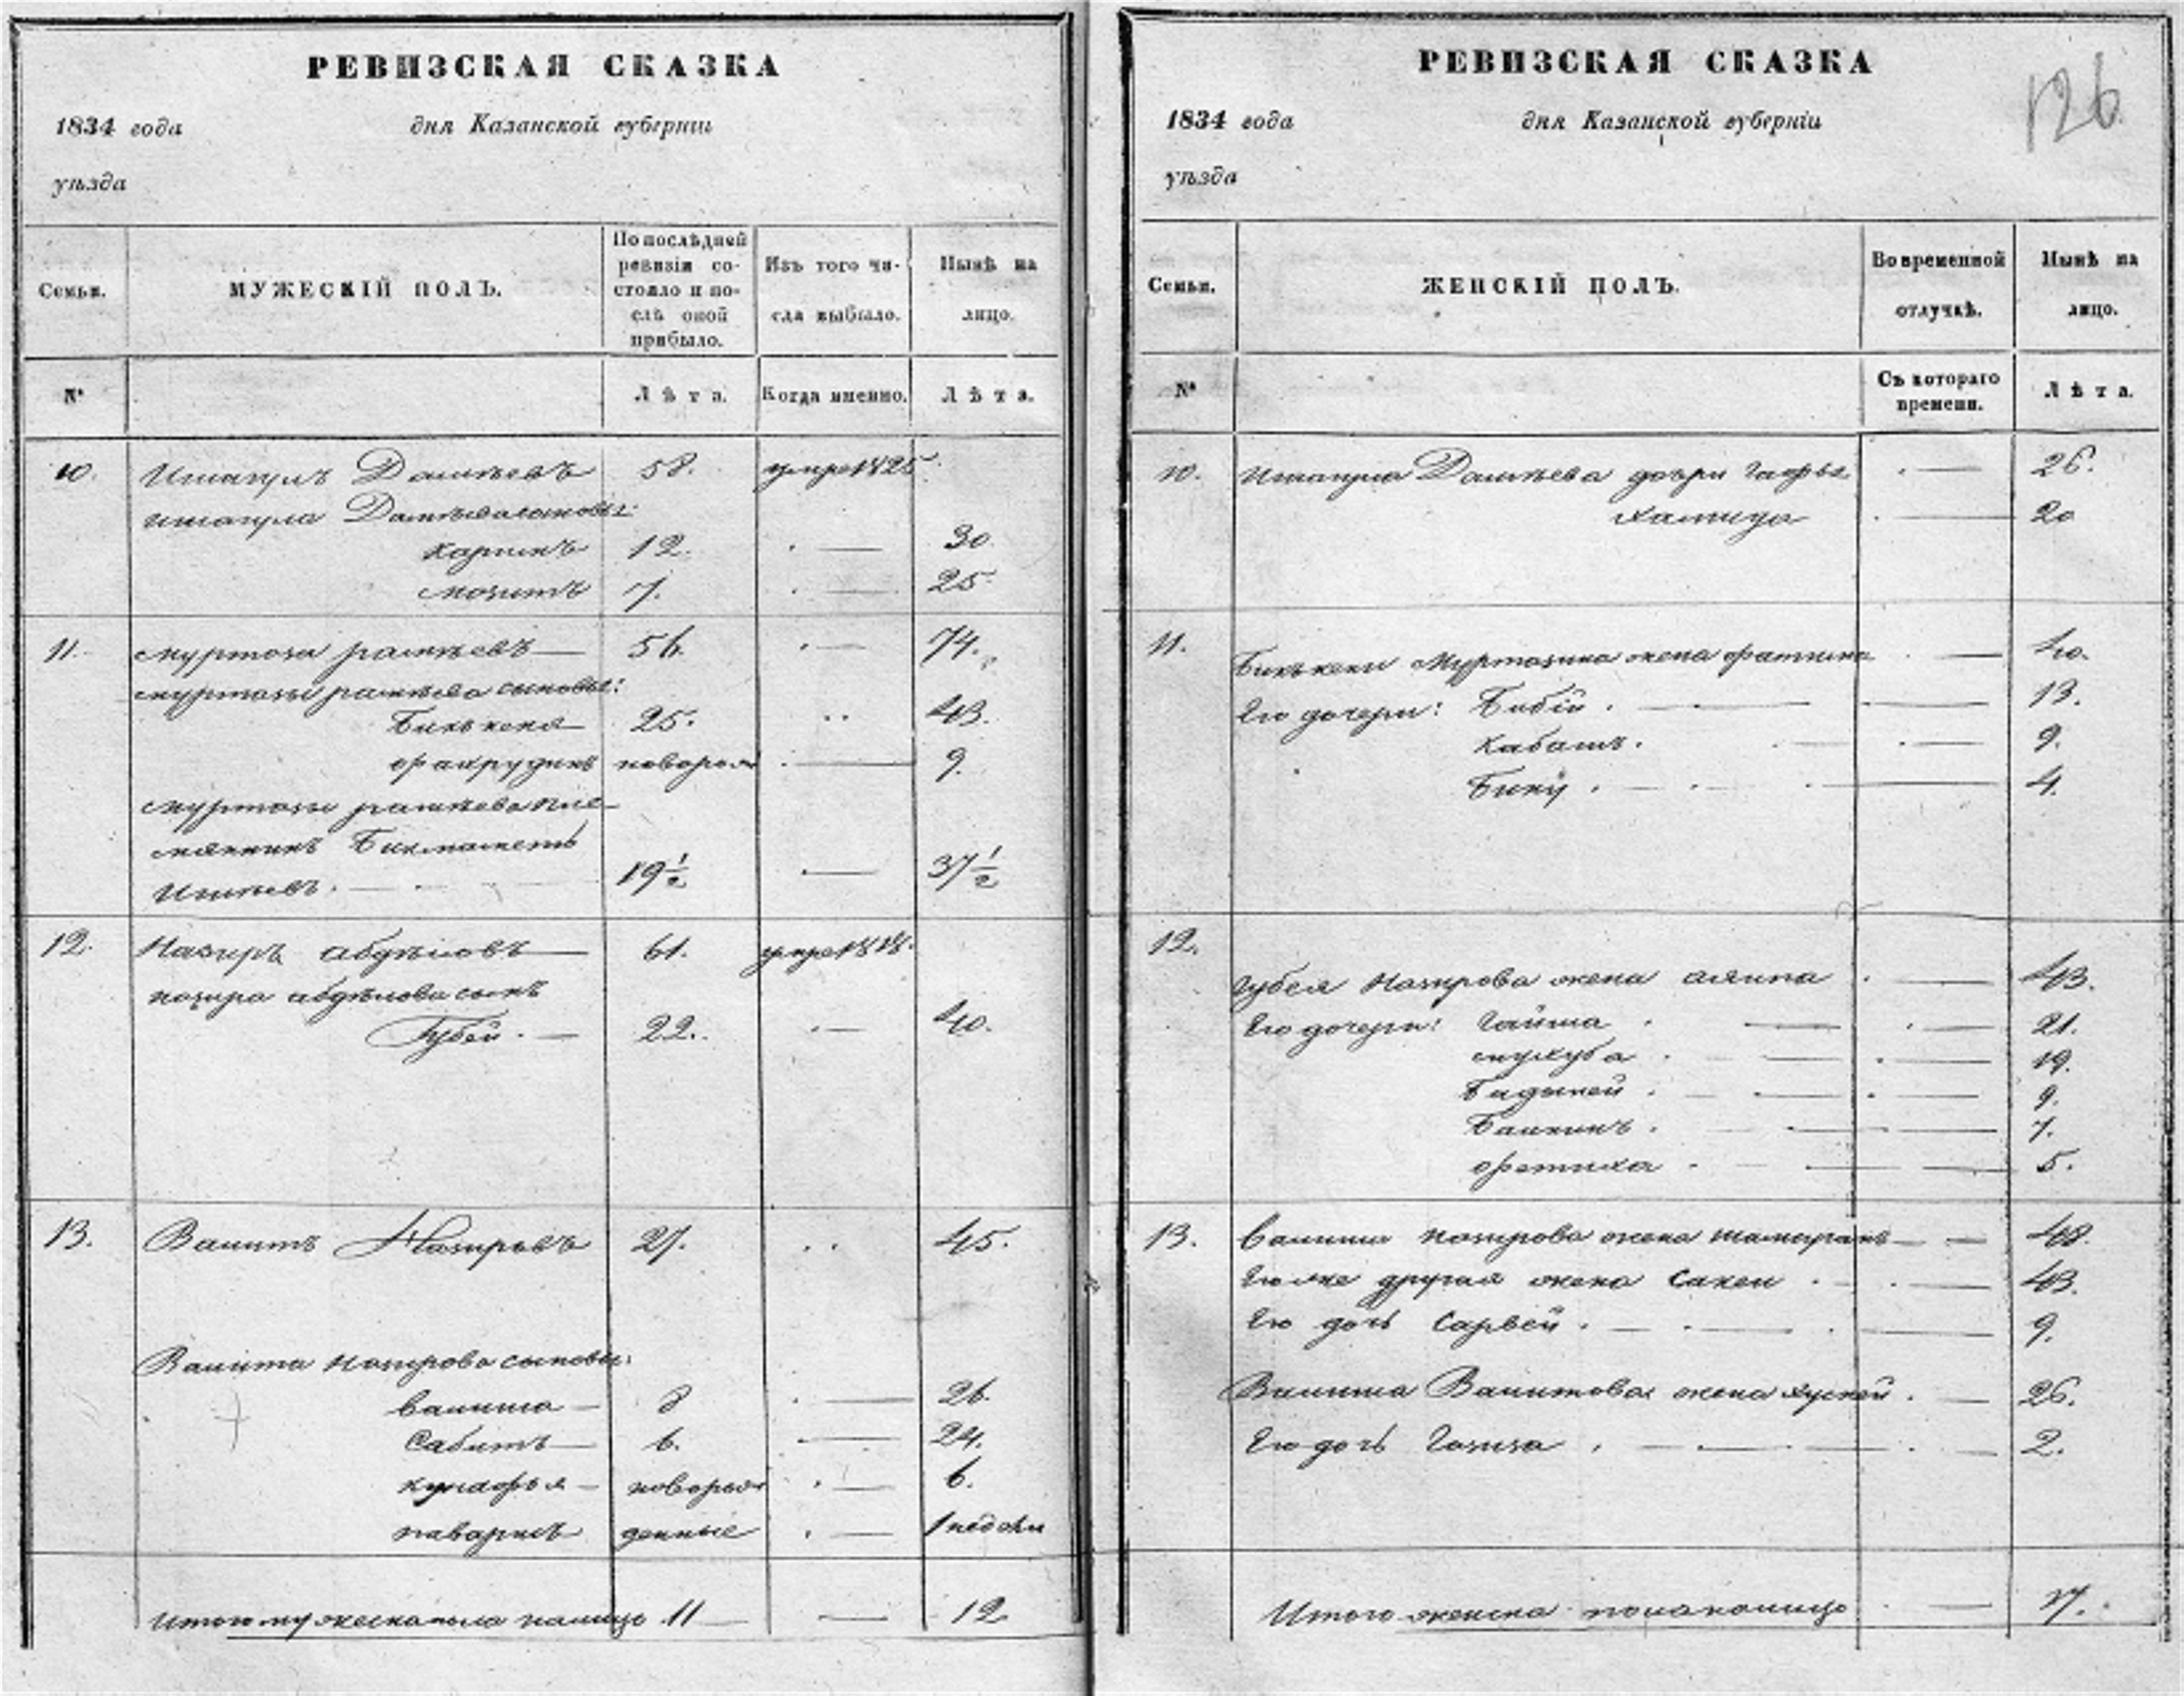 РЕВИЗСКАЯ СКАЗКА
1834 года дня Казанской губернии
уѣзда
Семьи.
МУЖЕСКІЙ ПОЛЪ.
По послѣдней ревизіи состояло и послѣ оной прибыло.
Изъ того числа выбыло.
Нынѣ на лицо.
№
Лѣта.
Когда именно.
Лѣта.
10. Ишагулъ 58. умре 1825.
ишагула
каримъ 12. 30.
мозитъ 7. 25.
11. муртоза рамѣевъ 56. 74.
муртозы рамѣева сыновья:
Бикъкеня 25. 43.
фахрудинъ новорож 9.
муртозы рамѣева пле-
мянникъ Бикмаметъ
Ишѣевъ. 19 1/2 37 1/2
12. Назиръ абдѣловъ 61. умре 1818.
назира абдѣлова сынъ
Губей. 22. 40.
13. Вагитъ Назировъ 27. 45.
Вагита Назирова сыновья:
8 26.
Сабитъ 6. 24.
новорож 6.
денные 1 недели
Итого мужеска пола налицо 11 12
РЕВИЗСКАЯ СКАЗКА
126
1834 года дня Казанской губерніи
уѣзда
Семьи.
ЖЕНСКІЙ ПОЛЪ.
Во временной отлучкѣ.
Нынѣ на лицо.
№
Съ котораго времени.
Лѣта.
10. Ишагула дочри 26.
Хамида 20
11. Бикъкени Муртазина жена фатима 40.
Его дочери: Бибіи. 13.
9.
Бику. 4.
12.
Губея Назирова жена 43.
Его дочери: Гайша 21.
19.
9.
7.
5.
13. Вагита назирова жена 48.
Его же другая жена Сакен 43.
Его дочь Сарвей. 9.
жена 26.
Его дочь Газиза. 2.
Итого женска пола налицо 17.